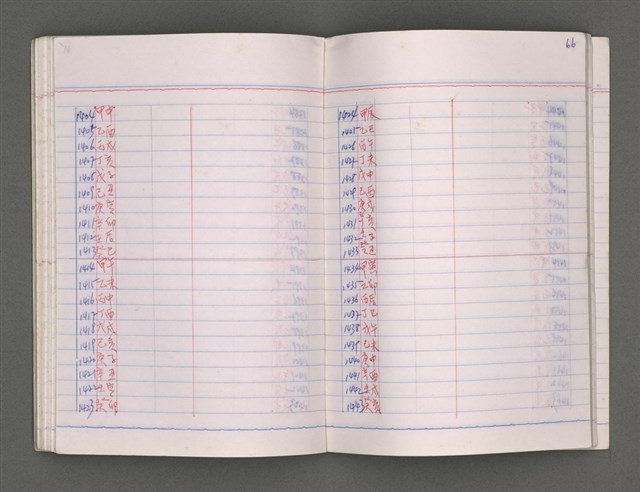 1404 甲申
1405 乙酉
1406 丙戌
1407 丁亥
1408 戊子
1409 己丑
1410 庚寅
1411 辛卯
1412 壬辰
1413 癸巳
1414 甲午
1415 乙未
1416 丙申
1417 丁酉
1418 戊戌
1419 己亥
1420 庚子
1421 辛丑
1422 壬寅
1423 癸卯
66
1424 甲辰
1425 乙巳
1426 丙午
1427 丁未
1428 戊申
1429 己酉
1430 庚戌
1431 辛亥
1432 壬子
1433 癸丑
1434 甲寅
1435 乙卯
1436 丙辰
1437 丁巳
1438 戊午
1439 己未
1440 庚申
1441 辛酉
1442 壬戌
1443 癸亥